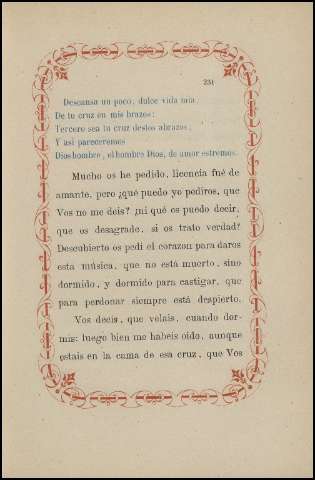 231
Descansa un poco, dulce vida mia
De tu cruz en mis brazos:
Tercero sea tu cruz destos abrazos,
Y asi pareceremos
Dios hombre, el hombre Dios, de amor estremos.
Mucho os he pedido, licencia fué de
amante, pero ¿qué puedo yo pediros, que
Vos no me deis? ¿ni qué os puedo decir,
que os desagrade, si os trato verdad?
Descubierto os pedi el corazon para daros
esta música, que no está muerto, sino
dormido, y dormido para castigar, que
para perdonar siempre está despierto.
Vos decis, que velais, cuando dor-
mis: luego bien me habeis oido, aunque
estais en la cama de esa cruz, que Vos